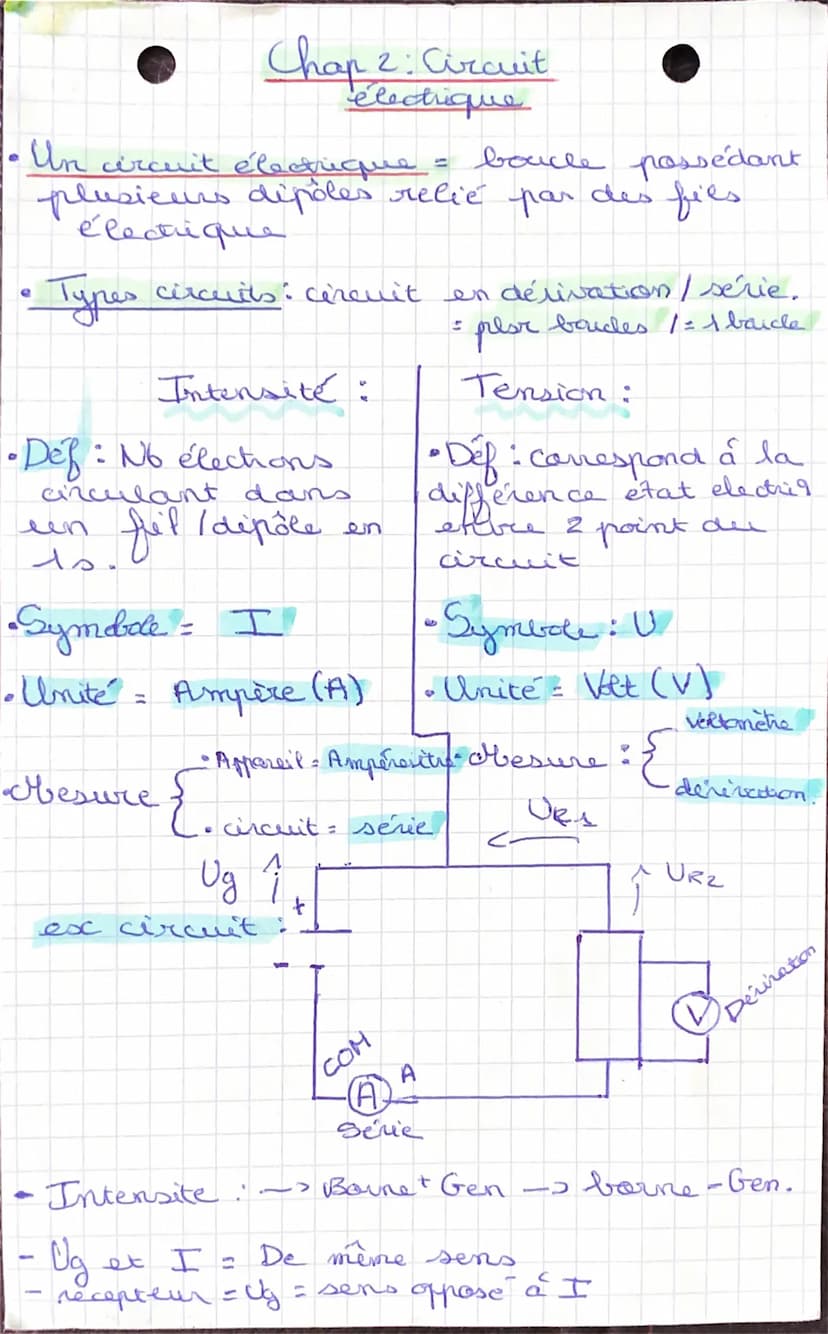 Chap 2 : Circuit
électrique
• Un circuit électrique = boucle possédant
plusieurs dipôles relié par des fils
électrique
• Types circuits : circuit en dérivation / série.
= plsr boucles / = 1 boucle
Intensité :
• Déf : Nb électrons
circulant dans
un fil / dipôle en
1s.
• Symbole = I
• Unité = Ampère (A)
• Mesure {
• Appareil = Ampèremètre
• circuit = série
Tension :
• Déf : correspond á la
différence état electriq
entre 2 point du
circuit
• Symbole : U
• Unité = Volt (V)
• Mesure : {
voltmètre
dérivation.
UR1
Ug
UR2
+
exc circuit :
-
V
Dérivation
COM
A
A
Série
- Intensite : -> Borne + Gen -> borne - Gen.
- Ug et I = De même sens
- récepteur = Ug = sens opposé á I